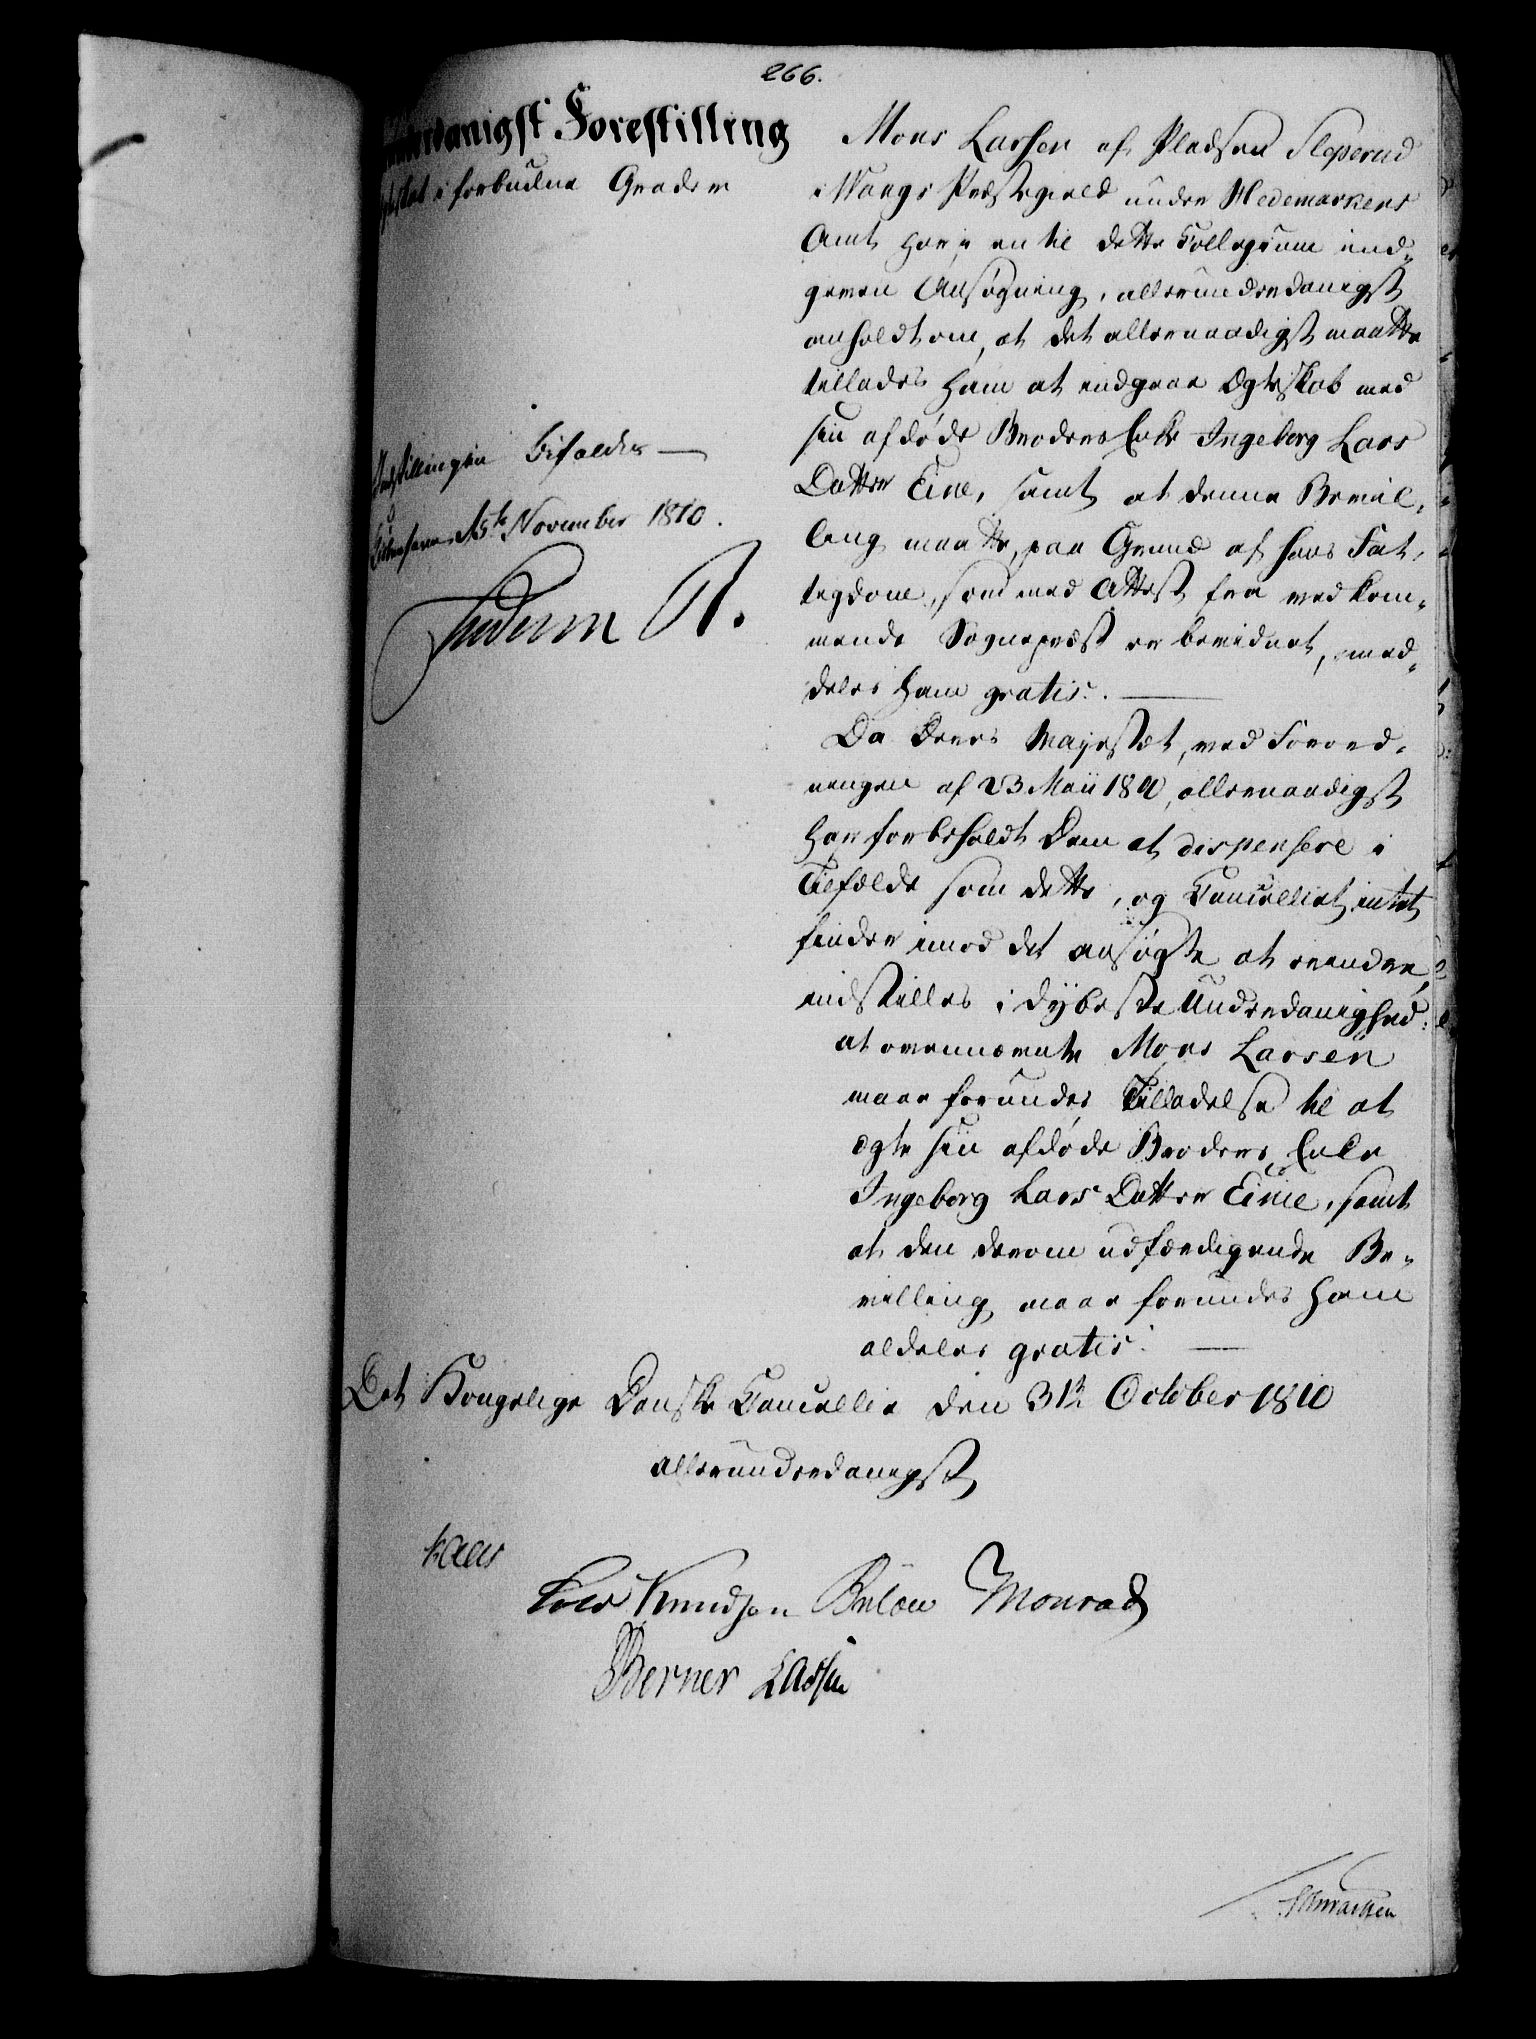 266.
Forestilling
i forbudne Grader
Indstillingen bifaldes —
15de November 1810.
Frederik R.
Mons Larsen af Pladsen Sleperud
i Wangs Præstegield under Hedemarkens
Amt har i en til dette Collegium ind-
given Ansøgning, allerunderdanigst
anholdt om, at det allernaadigst maatte
tillades ham at indgaae Ægteskab med
sin afdøde Broders Enke Ingeborg Lars
Datter Eine, samt at denne Bevil-
ling maatte, paa Grund af hans Fat-
tigdom, som med Attest fra vedkom-
mende Sognepræst er bevidnet, med-
deles ham gratis. —
Da Deres Majestæt, ved Forord-
ningen af 23 Maii 1800, allernaadigst
har forbeholdt Dem at dispensere i
Tilfælde som dette, og Cancelliet intet
finder imod det ansøgte at erindre,
indstilles i dybeste Underdanighed:
at ovennævnte Mons Larsen
maae forundes Tilladelse til at
ægte sin afdøde Broders Enke
Ingeborg Lars Datter Eine, samt
at den derom udfærdigende Be-
villing maae forundes ham
aldeles gratis. —
Det Kongelige Danske Cancellie den 31te October 1810
allerunderdanigst
Kaas
Cold Knudsen Bülow Monrad
Berner Lassen